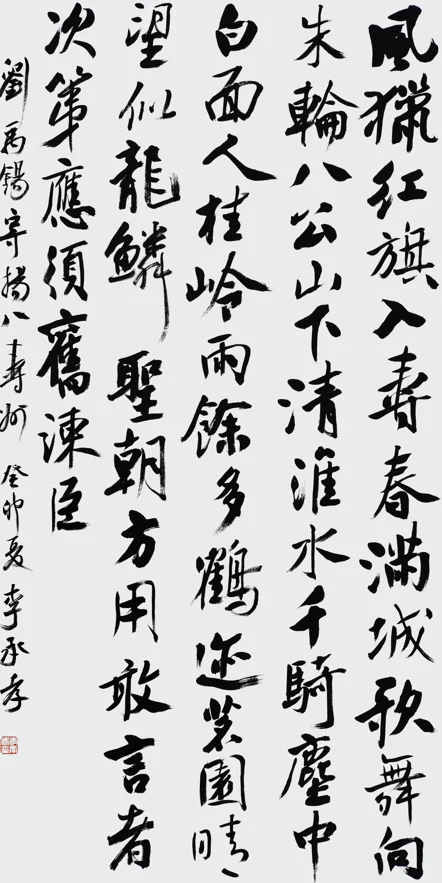 風獵紅旗入壽春滿城歌舞向
朱輪八公山下清淮水千騎塵中
白面人桂嶺雨餘多鶴迹茗園晴
望似龍鱗聖朝方用敢言者
次第應須舊諫臣
劉禹錫寄楊八壽州癸卯夏李承孝